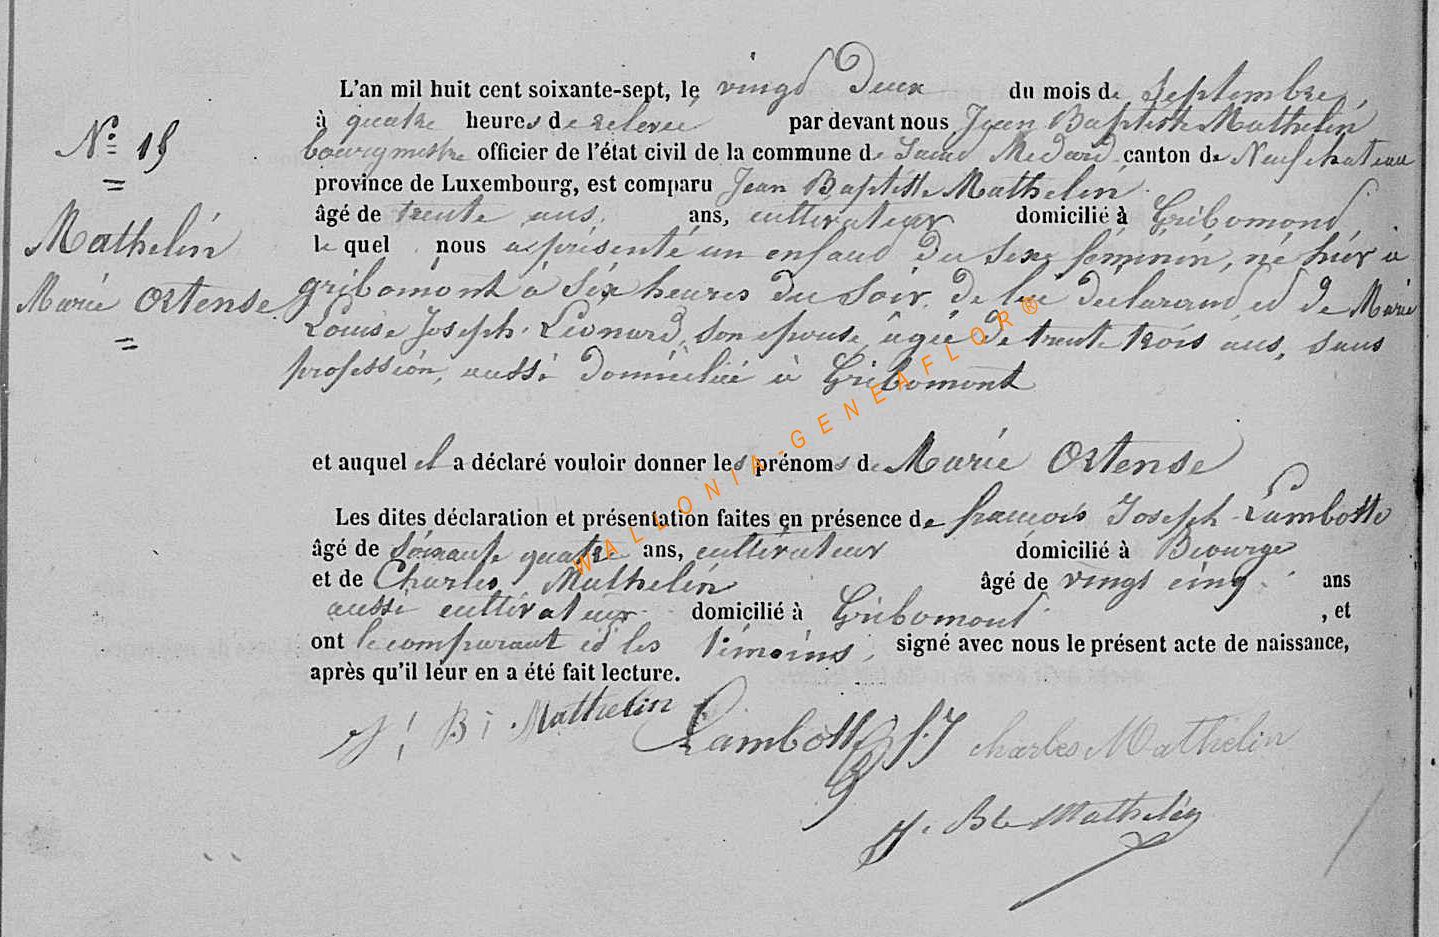 L'an mil huit cent soixante-sept, le vingt Deux du mois de Septembre,
à quatre heures de relevée par devant nous Jean Baptiste Mathelin
bourgmestre officier de l'état civil de la commune de Saint Medard canton de Neufchateau
province de Luxembourg, est comparu Jean Baptiste Mathelin
âgé de trente ans, ans, cultivateur domicilié à Gribomont
le quel nous a présenté un enfant du sexe féminin, né hier à
gribomont à six heures du soir, de lui déclarant, et de Marie
Louise Joseph Léonard, son epouse, âgée de trente trois ans, sans
profession, aussi domiciliée à Gribomont
et auquel il a déclaré vouloir donner les prénoms de Marie Ortense
Les dites déclaration et présentation faites en présence de françois Joseph Lambotte
âgé de soixante quatre ans, cultivateur domicilié à Biourge
et de Charles Mathelin âgé de vingt cinq ans
aussi cultivateur domicilié à Gribomont , et
ont le comparant et les témoins, signé avec nous le présent acte de naissance,
après qu'il leur en a été fait lecture.
J. B. Mathelin Lambotte f. J Charles Mathelin
J. Bte Mathelin
No 19
Mathelin
Marie Ortense
WALLONIA-GENEAFLOR®